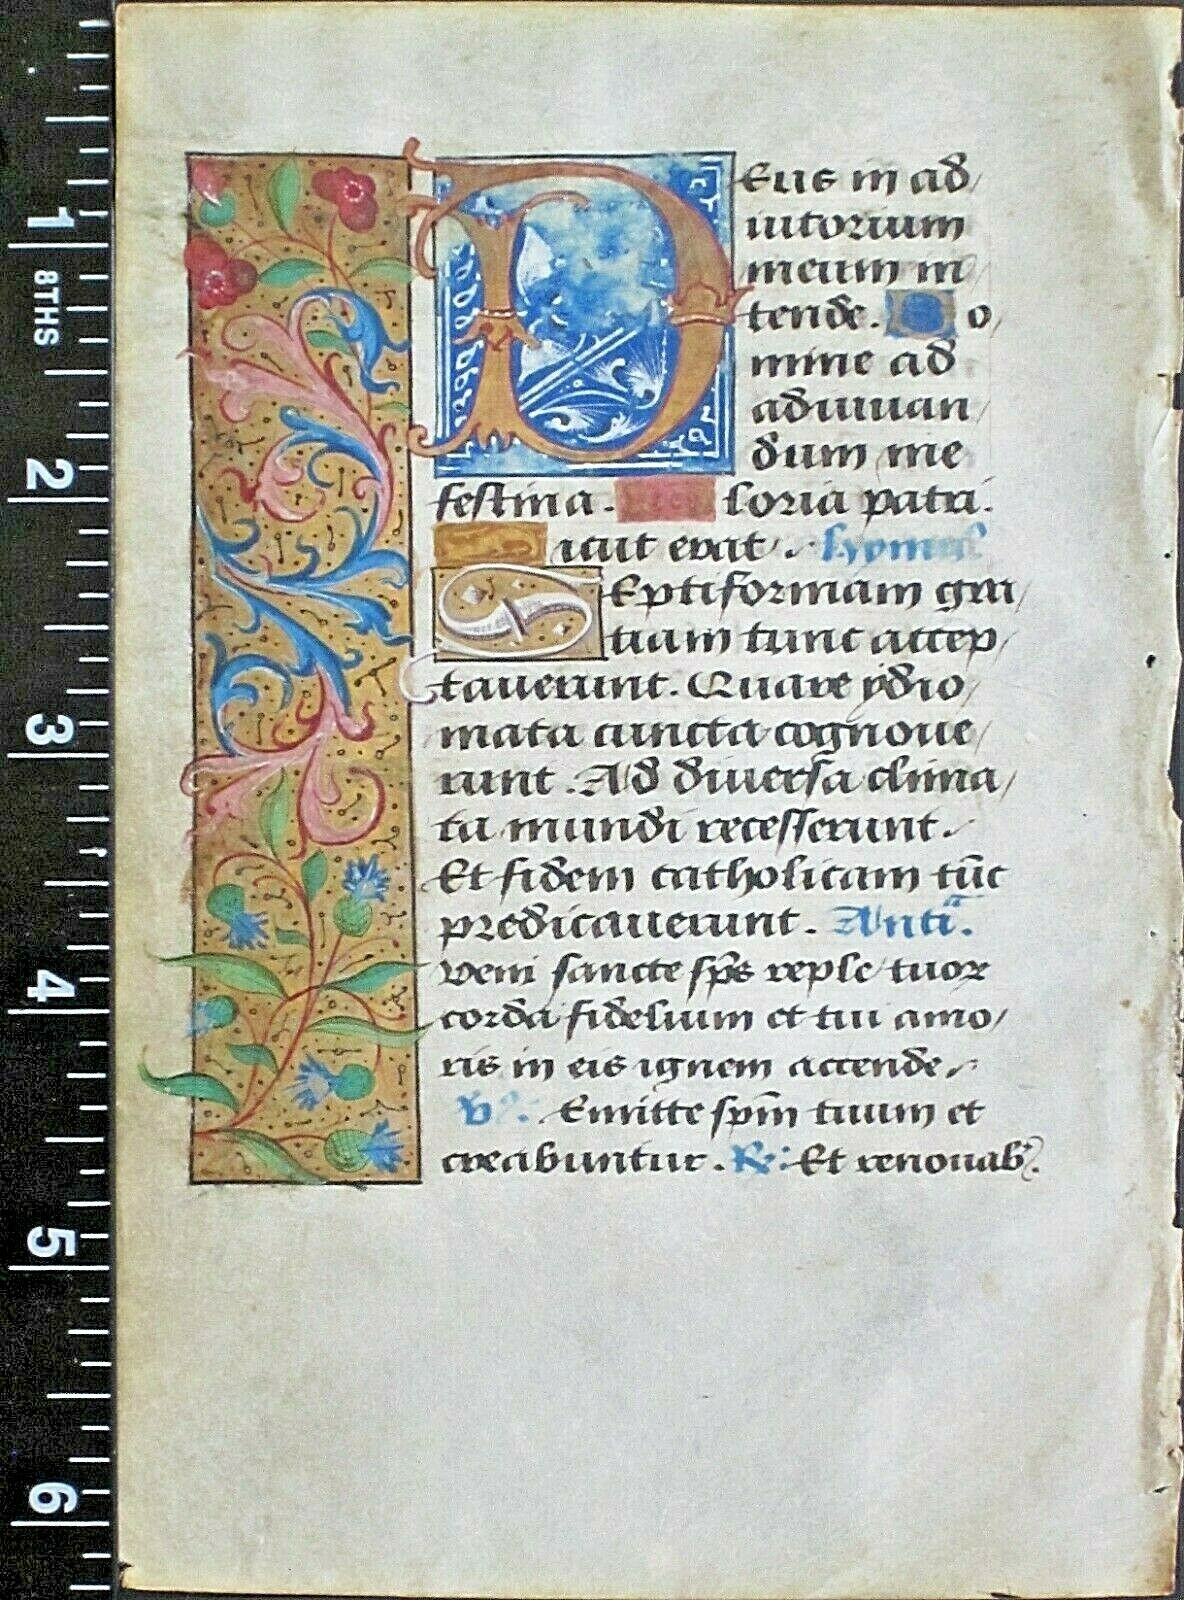 1
8THS
2
3
4
5
6
DEus in ad/
iutorium
meum in
tende. Do/
mine ad
adiuuan/
dum me
festina. Gloria patri.
Sicut erat. hymnus
SEptiformam gra/
tiam tunc accep/
tauerunt. Quare ydio/
mata cuncta cognoue/
runt. Ad diuersa clima/
ta mundi recesserunt.
Et fidem catholicam tūc
predicauerunt. Antiᵃ.
Veni sancte sp̄s reple tuoꝝ
corda fidelium et tui amo/
ris in eis ignem accende.
V: Emitte sp̄m tuum et
creabuntur. ℟: Et renouab.